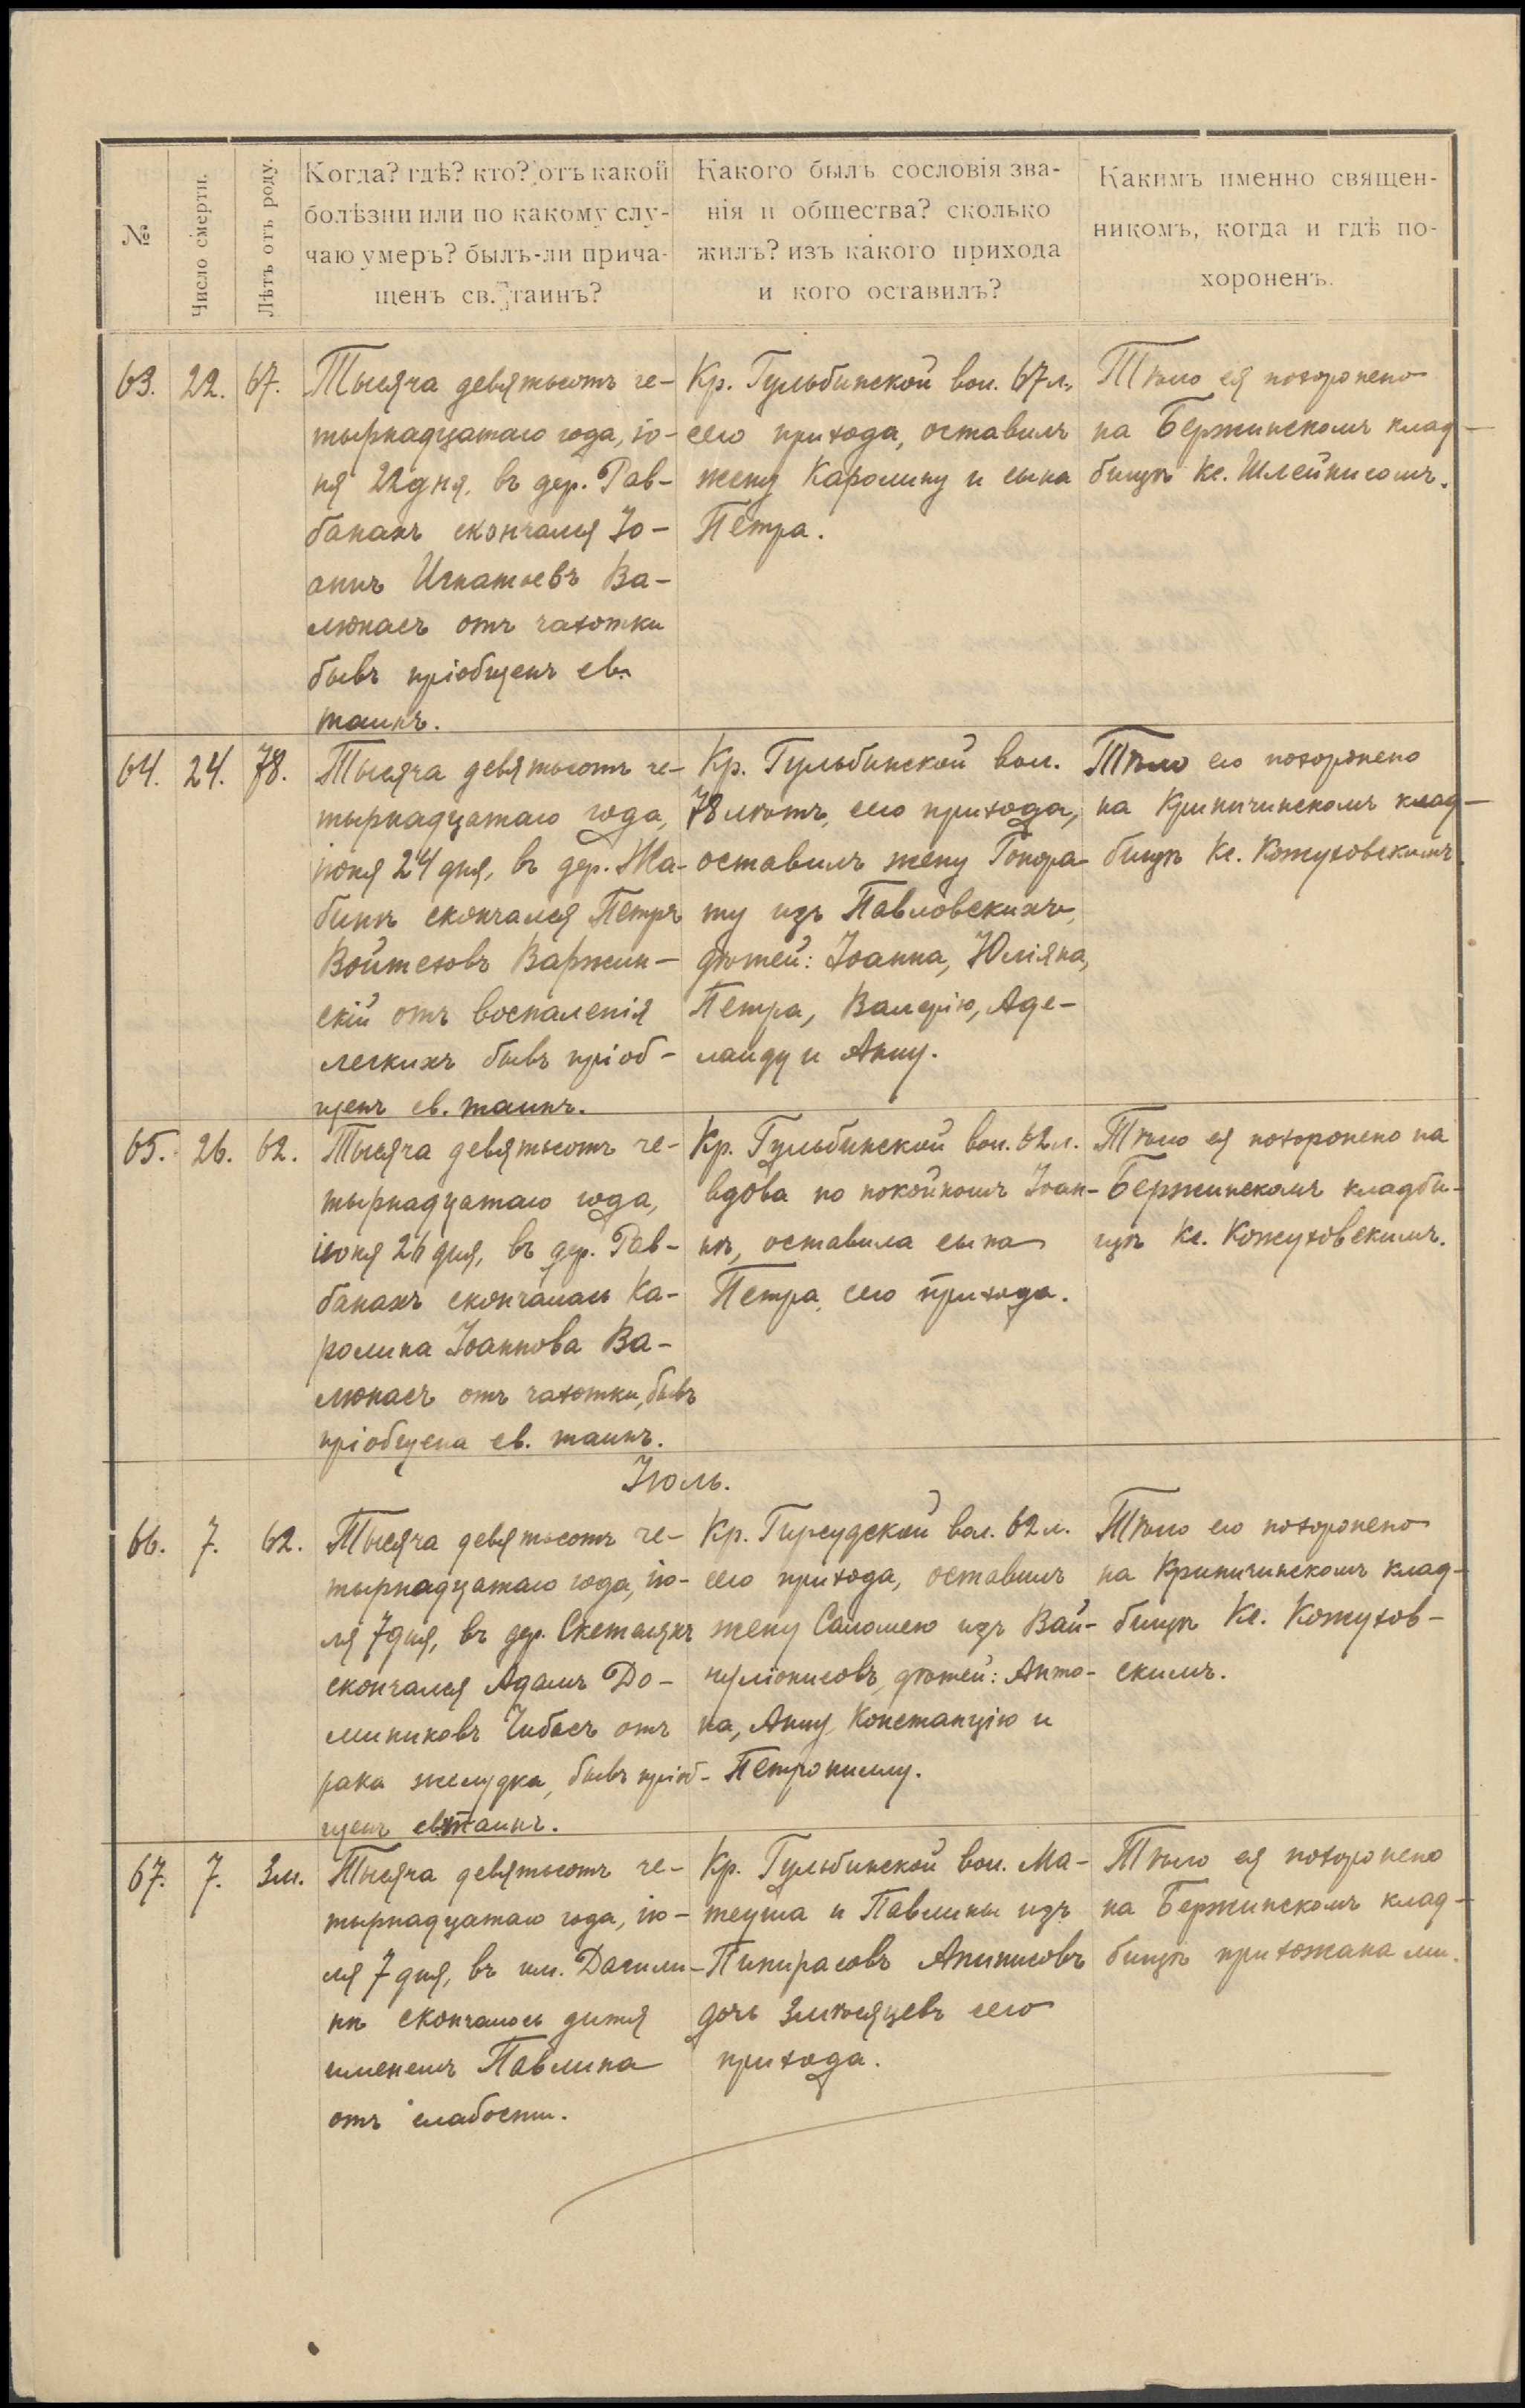 №
Число смерти.
Лѣтъ отъ роду.
Когда? гдѣ? кто? отъ какой
болѣзни или по какому слу-
чаю умеръ? былъ-ли прича-
щенъ св. таинъ?
Какого былъ сословія зва-
нія и общества? сколько
жилъ? изъ какого прихода
и кого оставилъ?
Какимъ именно священ-
никомъ, когда и гдѣ по-
хороненъ.
63. 22. 67.
Тысяча девятьсотъ че-
тырнадцатаго года, ію-
ня 22 дня, въ дер. Рав-
банахъ скончался Іо-
аннъ Игнатьевъ Ва-
люнасъ отъ чахотки
бывъ пріобщенъ св.
таинъ.
Кр. Гульбинской вол. 67 л.
сего прихода, оставилъ
жену Каролину и сына
Петра.
Тѣло ея похоронено
на Бержинскомъ клад-
бищѣ Кс. Шлейнисомъ.
64. 24. 78.
Тысяча девятьсотъ че-
тырнадцатаго года,
іюня 24 дня, въ дер. Жа-
бинѣ скончался Петръ
ВойтеховъВаржин-
скій отъ воспаленія
легкихъ бывъ пріоб-
щенъ св. таинъ.
Кр. Гульбинской вол.
78 лѣтъ, сего прихода,
оставилъ жену Гонора-
ту изъ Павловскихъ,
дѣтей: Іоанна, Юліяна,
Петра, Валерію, Аде-
лаиду и Анну.
Тѣло его похоронено
на Криничинскомъ клад-
бищѣ Кс. Кожуховскимъ.
65. 26. 62.
Тысяча девятьсотъ че-
тырнадцатаго года,
іюня 26 дня, въ дер. Рав-
банахъ скончалась Ка-
ролина Іоаннова Ва-
люнасъ отъ чахотки, бывъ
пріобщена св. таинъ.
Кр. Гульбинской вол. 62 л.
вдова по покойномъ Іоан-
нѣ, оставила сына
Петра, сего прихода.
Тѣло ея похоронено на
Бержинскомъ кладби-
щѣ Кс. Кожуховскимъ.
Іюль.
66. 7. 62.
Тысяча девятьсотъ че-
тырнадцатаго года, ію-
ля 7 дня, въ дер. Скеталяхъ
скончался Адамъ До-
миниковъ Чибасъ отъ
рака желудка, бывъ пріоб-
щенъ св. таинъ.
Кр. Гирсудской вол. 62 л.
сего прихода, оставилъ
жену Саломею изъ Вай-
чуліонисовъ, дѣтей: Анто-
на, Анну, Констанцію и
Петронимлу.
Тѣло его похоронено
на Криничинскомъ клад-
бищѣ Кс. Кожухов-
скимъ.
67. 7. 3 м.
Тысяча девятьсотъ че-
тырнадцатаго года, ію-
ля 7 дня, въ им. Дагили-
нѣ скончалось дитя
именемъ Павлина
отъ слабости.
Кр. Гульбинской вол. Ма-
теуша и Павлины изъ
Пипирасовъ Апинисовъ
дочь 3 мѣсяцевъ сего
прихода.
Тѣло ея похоронено
на Бержинскомъ клад-
бищѣ прихожанами.